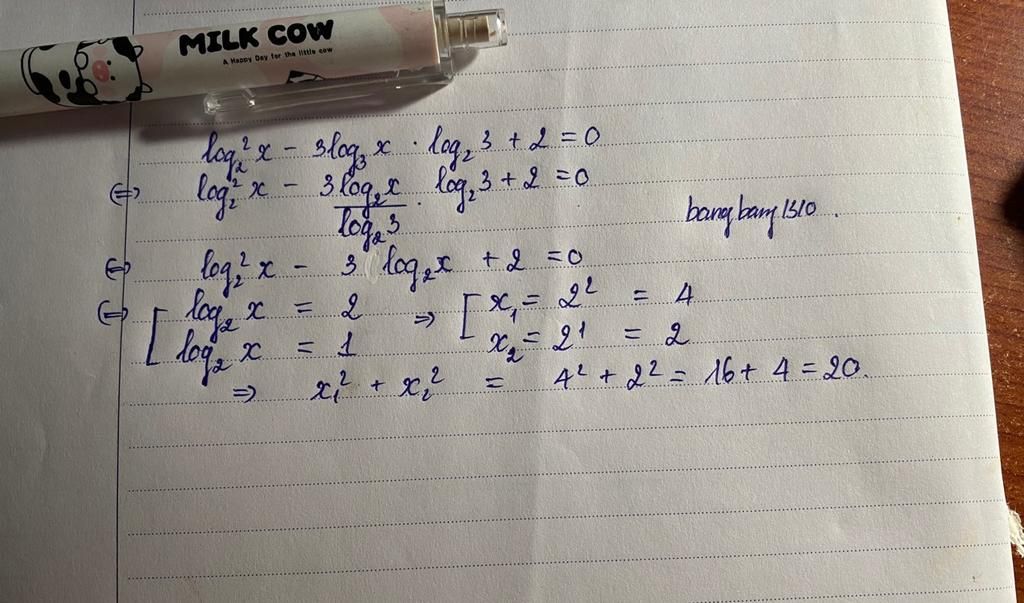 MILK COW
A Happy Day for the little cow
log₂²x - 3log₃x · log₂3 + 2 = 0
⇔ log₂²x - 3log₂x/log₂3 · log₂3 + 2 = 0
bangbang1310.
⇔ log₂²x - 3 log₂x + 2 = 0
⇔ [ log₂x = 2 ⇒ [ x₁ = 2² = 4
log₂x = 1 x₂ = 2¹ = 2
⇒ x₁² + x₂² = 4² + 2² = 16 + 4 = 20.